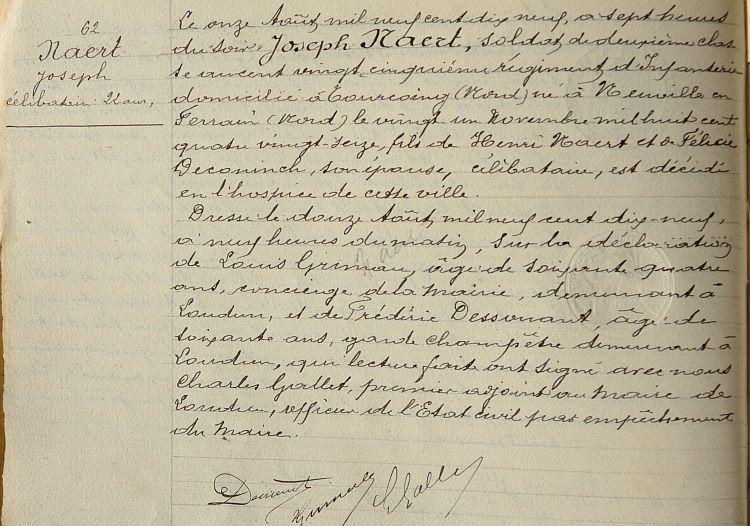 62
Naert
Joseph
célibataire: 22 ans,
Le onze Août, mil neuf cent dix neuf, à sept heures
du soir, Joseph Naert, soldat de deuxième clas-
se au cent vingt cinquième régiment d'Infanterie
domicilié à Tourcoing (Nord) né à Neuville en
Ferrain (Nord) le vingt un Novembre mil huit cent
quatre vingt-seize, fils de Henri Naert et de Félicie
Deconinch, son épouse, célibataire, est décédé
en l'hospice de cette ville.
Dressé le douze Août, mil neuf cent dix-neuf,
à neuf heures du matin, sur la déclaration
de Louis Grimau, âgé de soixante quatre
ans, concierge de la mairie, demeurant à
Loudun, et de Frédéric Dessouant, âgé de
soixante ans, garde champêtre demeurant à
Loudun, qui lecture faite ont signé avec nous
Charles Gallet, premier adjoint au maire de
Loudun, officier de l'Etat civil par empêchement
du Maire.